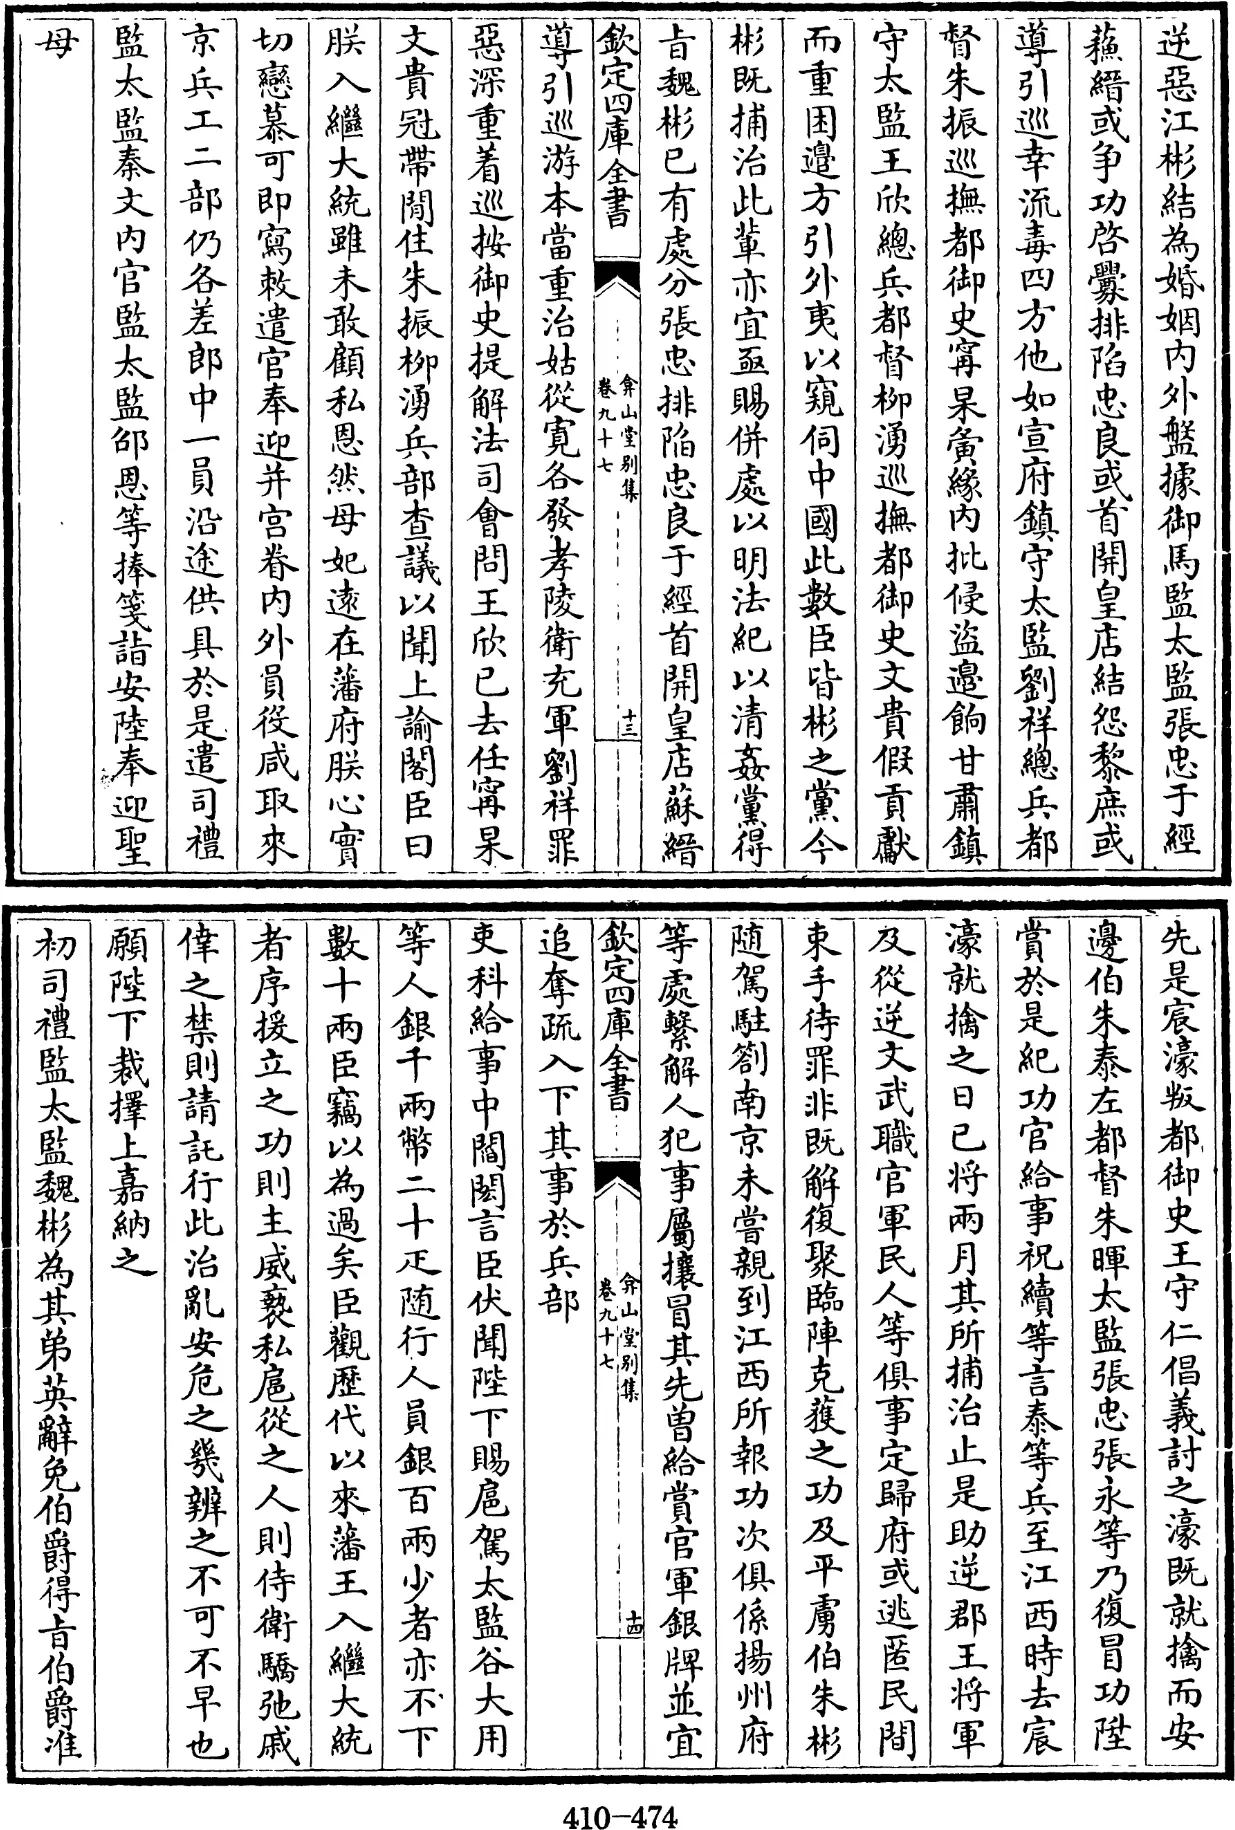 逆惡江彬結為婚姻内外盤據御馬監太監張忠于經
蘓縉或争功啓釁排陷忠良或首開皇店結怨黎庶或
導引巡幸流毒四方他如宣府鎮守太監劉祥總兵都
督朱振巡撫都御史甯杲夤緣内批侵盜邉餉甘肅鎮
守太監王欣總兵都督柳湧巡撫都御史文貴假貢獻
而重困邉方引外夷以窺伺中國此數臣皆彬之黨今
彬既捕治此輩亦宜亟賜併處以明法紀以清姦黨得
㫖魏彬已有處分張忠排陷忠良于經首開皇店蘇縉
欽定四庫全書
弇山堂别集
卷九十七
十三
導引巡游本當重治姑從寛各發孝陵衛充軍劉祥罪
惡深重着巡按御史提解法司會問王欣已去任甯杲
文貴冠帶閒住朱振柳湧兵部查議以聞上諭閣臣曰
朕入繼大統雖未敢顧私恩然母妃逺在藩府朕心實
切戀慕可即寫敕遣官奉迎并宫眷内外員役咸取來
京兵工二部仍各差郎中一員沿途供具於是遣司禮
監太監秦文内官監太監邵恩等捧箋詣安陸奉迎聖
母
先是宸濠叛都御史王守仁倡義討之濠既就擒而安
邊伯朱泰左都督朱暉太監張忠張永等乃復冒功陞
賞於是紀功官給事祝續等言泰等兵至江西時去宸
濠就擒之日已将兩月其所捕治止是助逆郡王将軍
及從逆文武職官軍民人等俱事定歸府或逃匿民間
束手待罪非既解復聚臨陣克獲之功及平虜伯朱彬
随駕駐劄南京未嘗親到江西所報功次俱係揚州府
等處繫解人犯事屬攘冒其先曽給賞官軍銀牌並宜
欽定四庫全書
弇山堂别集
卷九十七
十四
追奪疏入下其事於兵部
吏科給事中閻閎言臣伏聞陛下賜扈駕太監谷大用
等人銀千兩幣二十疋随行人員銀百兩少者亦不下
數十兩臣竊以為過矣臣觀歴代以來藩王入繼大統
者序援立之功則主威褻私扈從之人則侍衛驕弛戚
倖之禁則請託行此治亂安危之幾辨之不可不早也
願陛下裁擇上嘉納之
初司禮監太監魏彬為其弟英辭免伯爵得㫖伯爵准
410-474